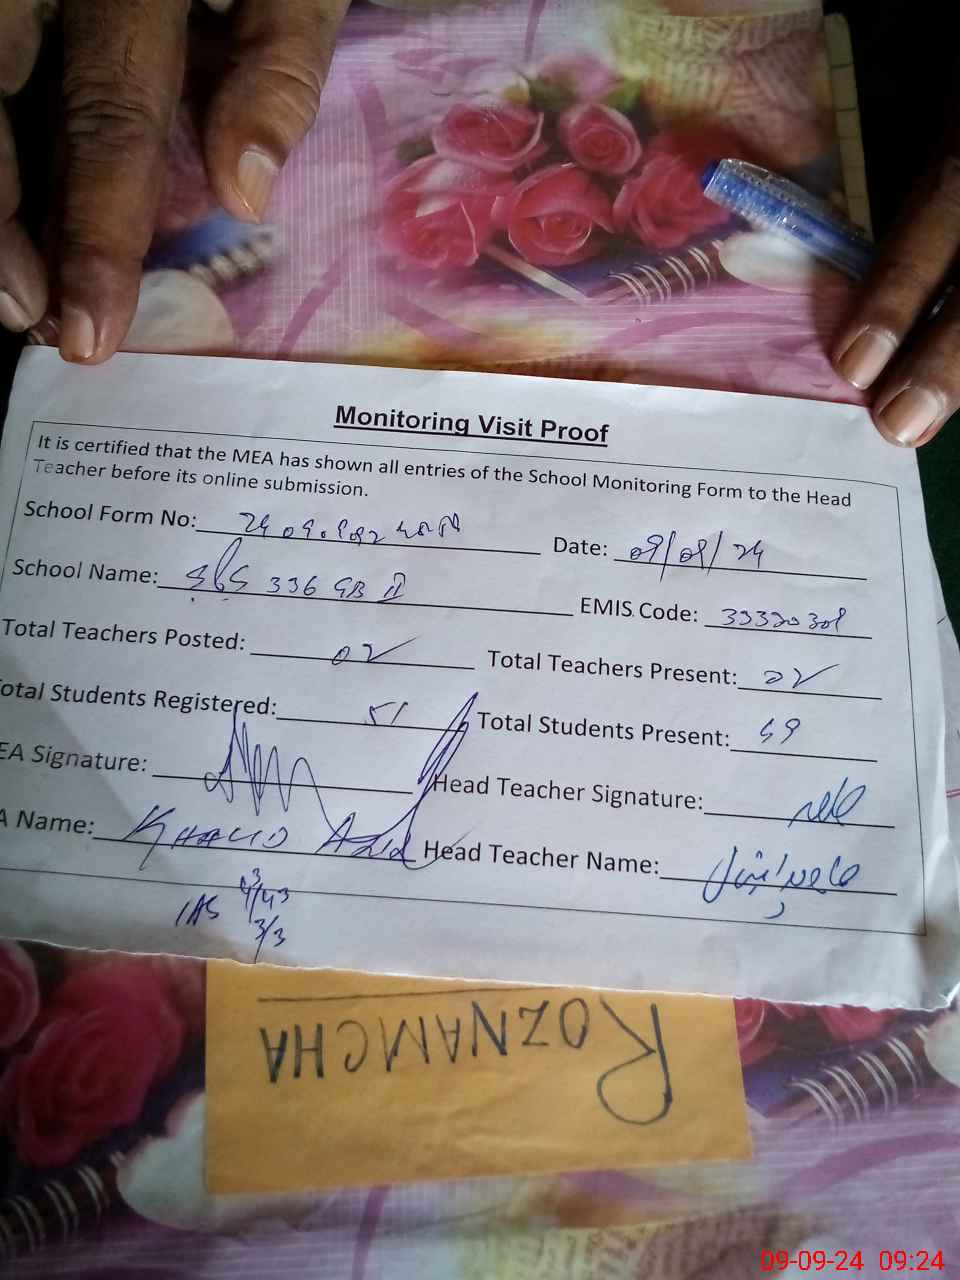 Monitoring Visit Proof
It is certified that the MEA has shown all entries of the School Monitoring Form to the Head
Teacher before its online submission.
School Form No:
Date: 09/09/24
School Name: 336 GB II
EMIS Code: 33320309
Total Teachers Posted: 02
Total Teachers Present: 02
otal Students Registered: 51
Total Students Present: 49
EA Signature:
Head Teacher Signature:
A Name: KHALID
Head Teacher Name:
3/3
ROZNAMCHA
09-09-24 09:24